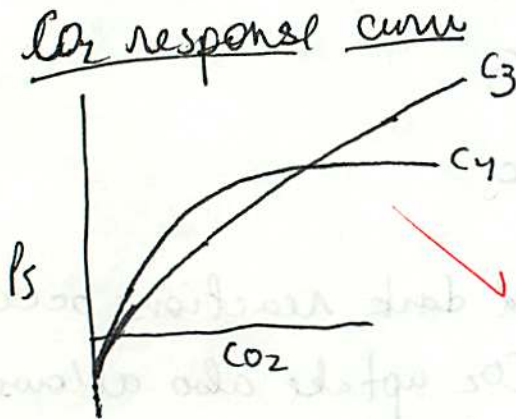 CO2 response curve
C3
C4
Ps
CO2